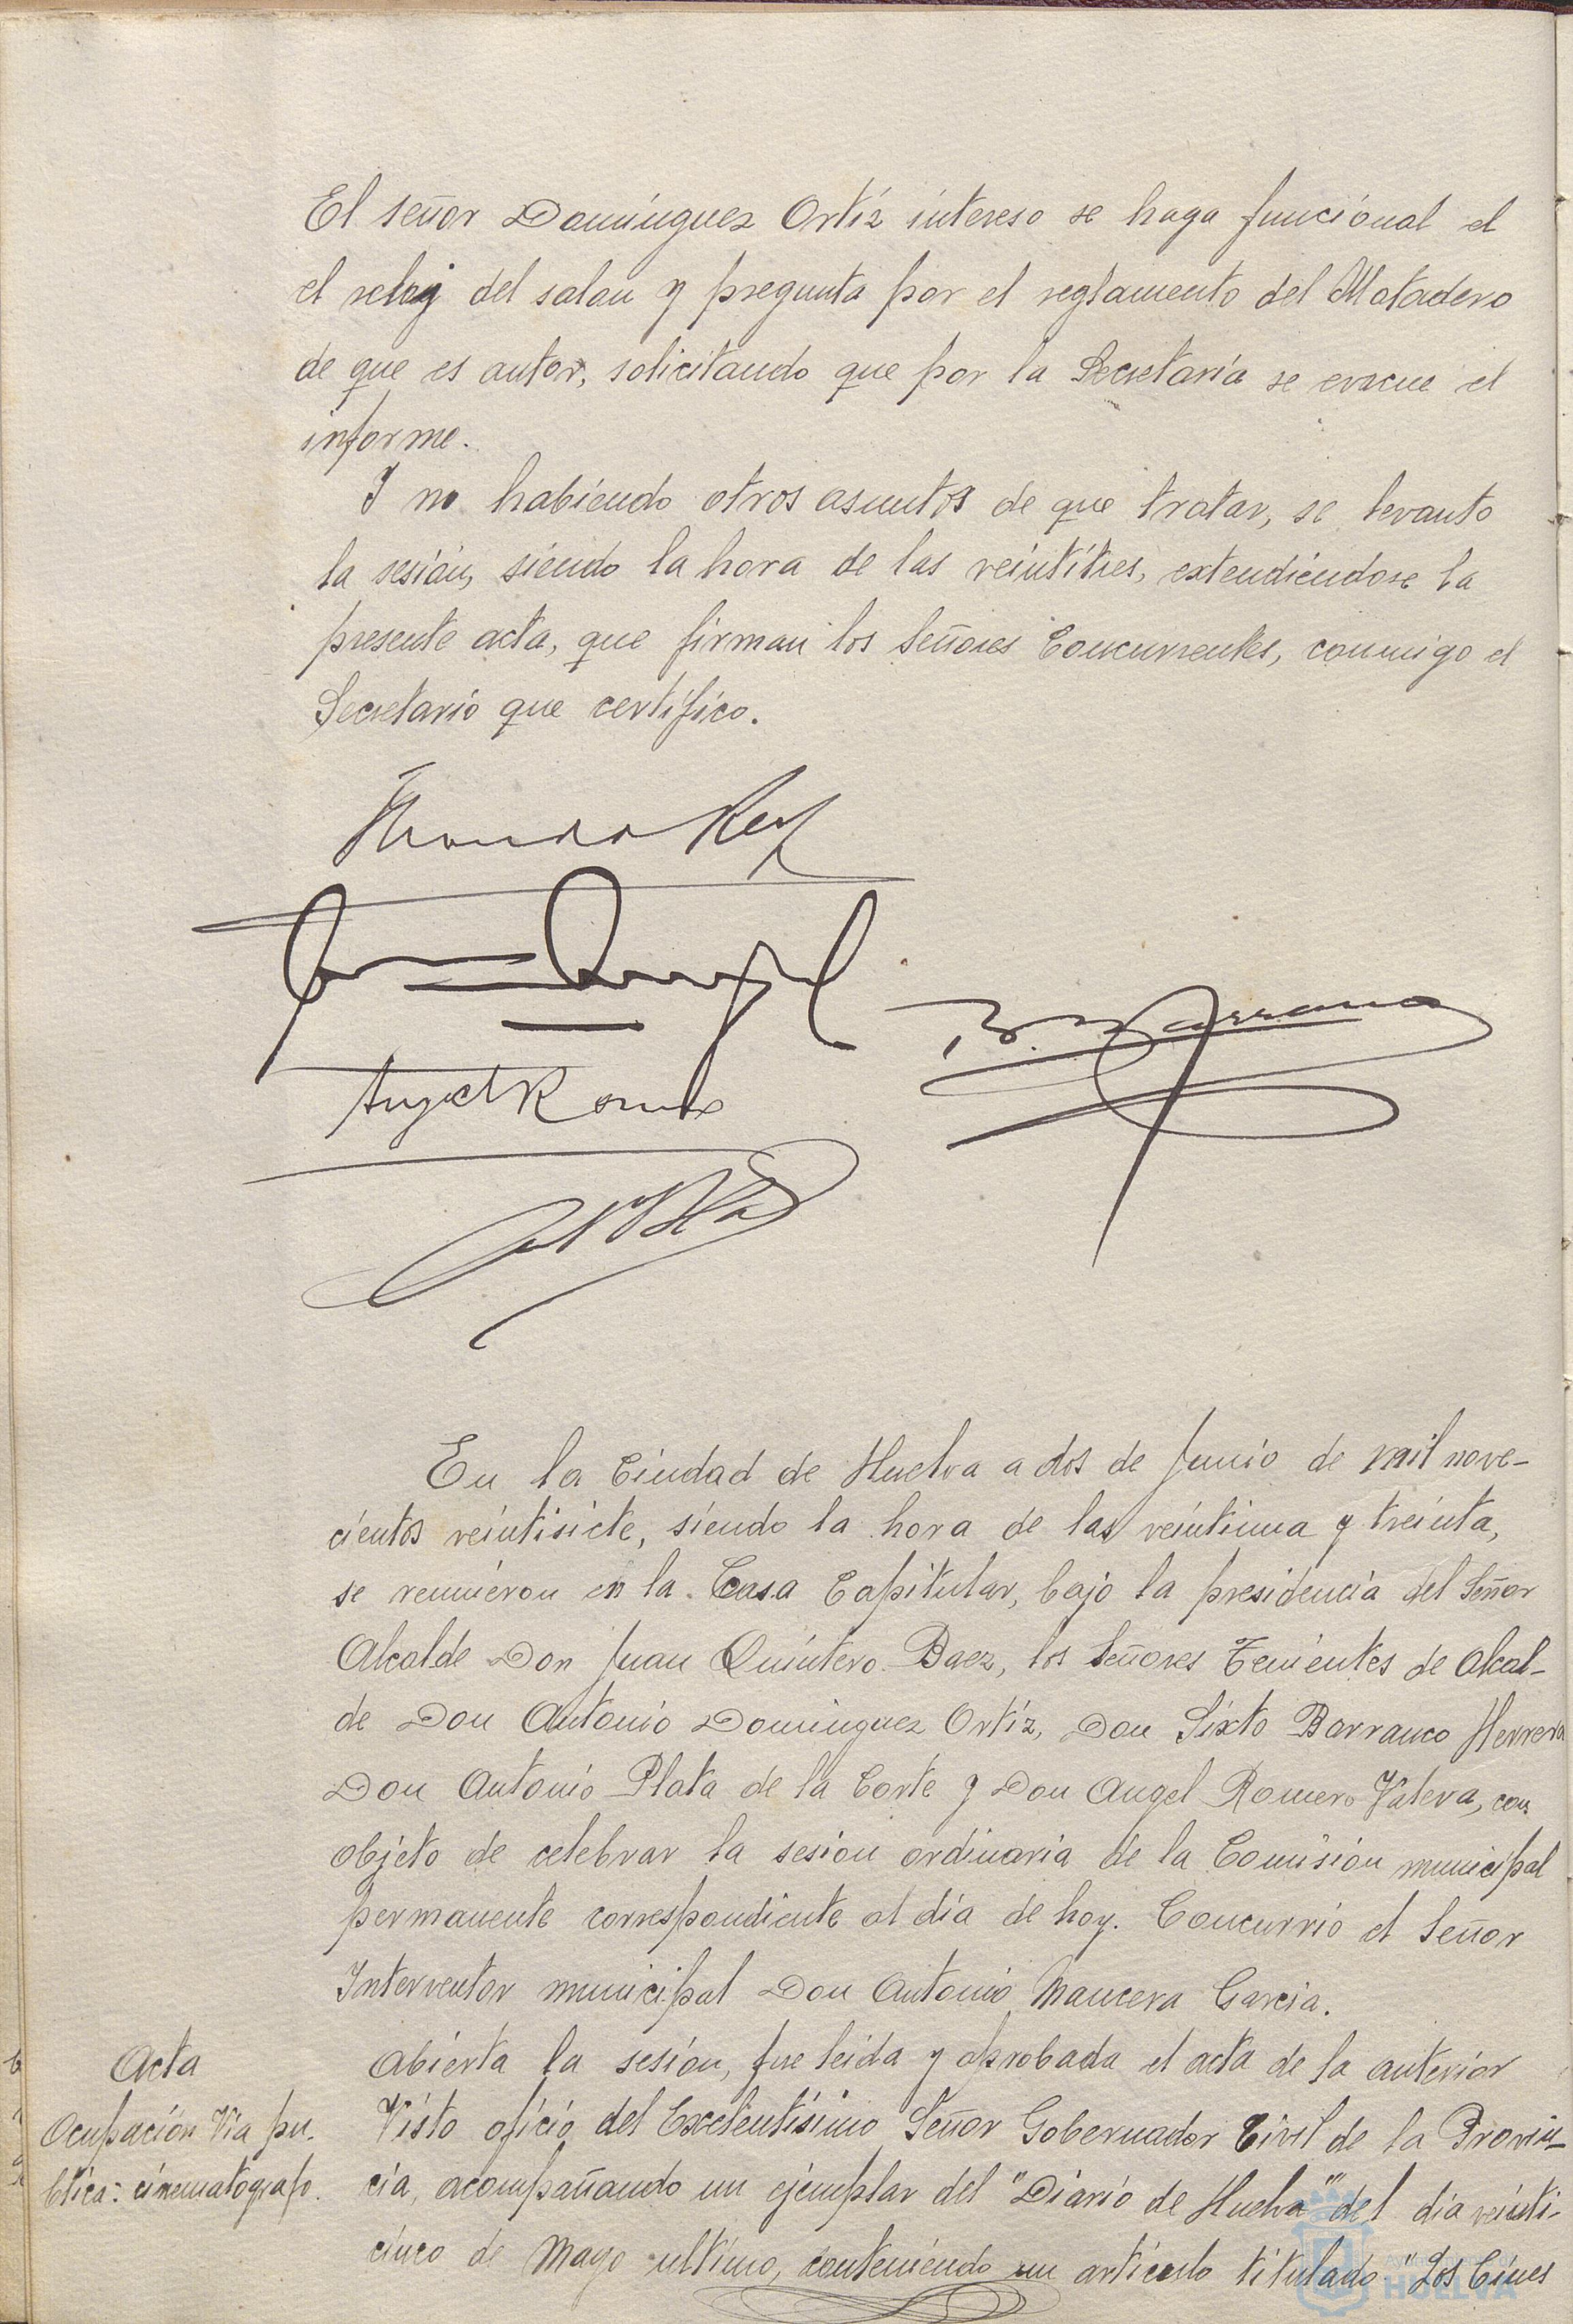 El señor Domínguez Ortíz intereso se haga funcional el
el reloj del salon y pregunta por el reglamento del Matadero
de que es autor, solicitando que por la Secretaría se evacue el
informe.
Y no habiendo otros asuntos de que tratar, se levanto
la sesión, siendo la hora de las veintitres, extendiendose la
presente acta, que firman los Señores Concurrentes, conmigo el
Secretario que certifico.
Angel Romero
En la Ciudad de Huelva a dos de Junio de mil nove-
cientos veintisiete, siendo la hora de las veintiuna y treinta,
se reunieron en la Casa Capitular, bajo la presidencia del Señor
Alcalde Don Juan Quintero Baez, los Señores Tenientes de Alcal-
de Don Antonio Dominguez Ortiz, Don Sixto Barranco Herrera
Don Antonio Plata de la Corte y Don Angel Romero Valera, con
objeto de celebrar la sesion ordinaria de la Comision municipal
permanente correspondiente al día de hoy. Concurrio el Señor
Interventor municipal Don Antonio Mancera Garcia.
Acta
Abierta la sesión, fue leida y aprobada el acta de la anterior
Ocupación Via pu-
blica: cinematografo.
Visto oficio del Excelentísimo Señor Gobernador Civil de la Provin-
cia, acompañando un ejemplar del "Diario de Huelva" del dia veinti-
cinco de Mayo ultimo, conteniendo un articulo titulado "Los Cines
HUELVA